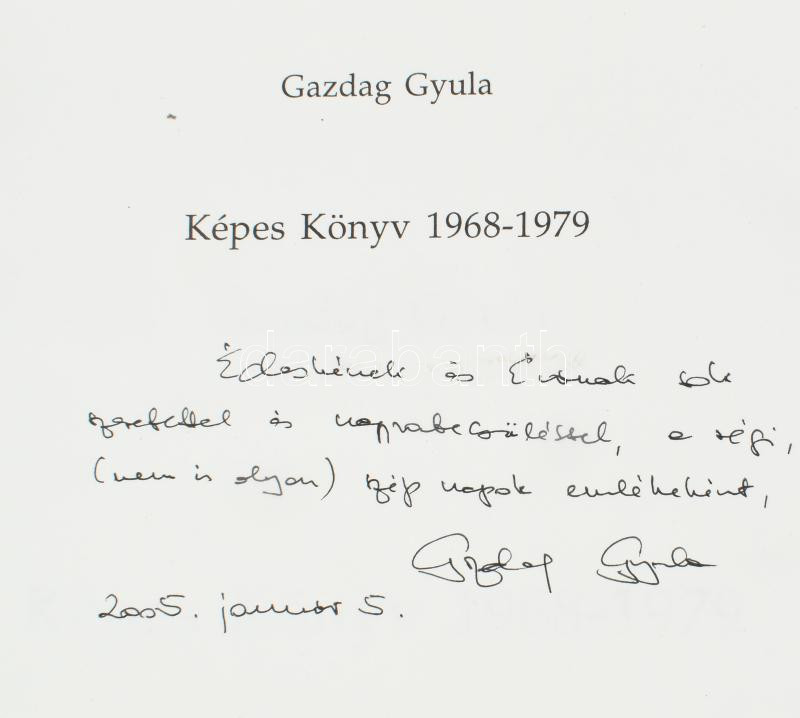 Gazdag Gyula
Képes Könyv 1968-1979
darabanth
és Évának sok
szeretettel és nagyrabecsüléssel, a régi,
(nem is olyan) szép napok emlékeként,
Gazdag Gyula
2005. január 5.